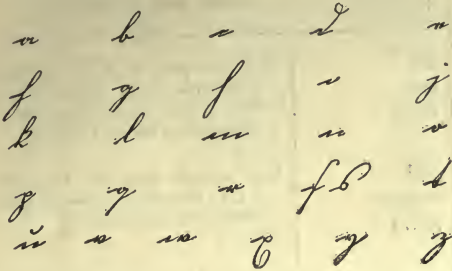 a b c d e
f g h i j
k l m n o
p q r ſ s t
u v w x y z